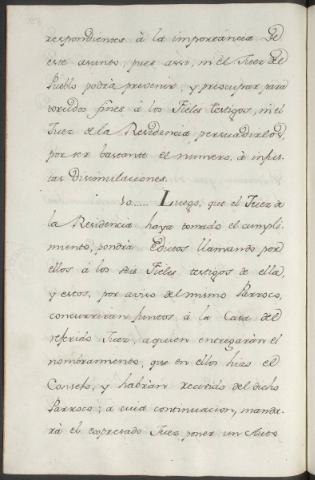 respondientes à la importancia de
este asunto, pues assi, ni el Juez del
Pueblo podrà prevenir, y preocupar para
torcidos fines à los Fieles testigos, ni el
Juez de la Residencia persuadirlos,
por ser bastante el numero, à injus-
tas Disimulaciones.
10..... Luego, que el Juez de
la Residencia haya tomado el cumpli-
miento, pondrà Edictos llamando por
ellos à los seis Fieles testigos de ella,
y estos, por aviso del mismo Parroco,
concurriran juntos à la Casa del
referido Juez, a quien entregaràn el
nombramiento, que en ellos hizo el
Consejo, y habràn recivido del dicho
Parroco; a cuia continuacion, manda-
rà el expresado Juez poner un Auto